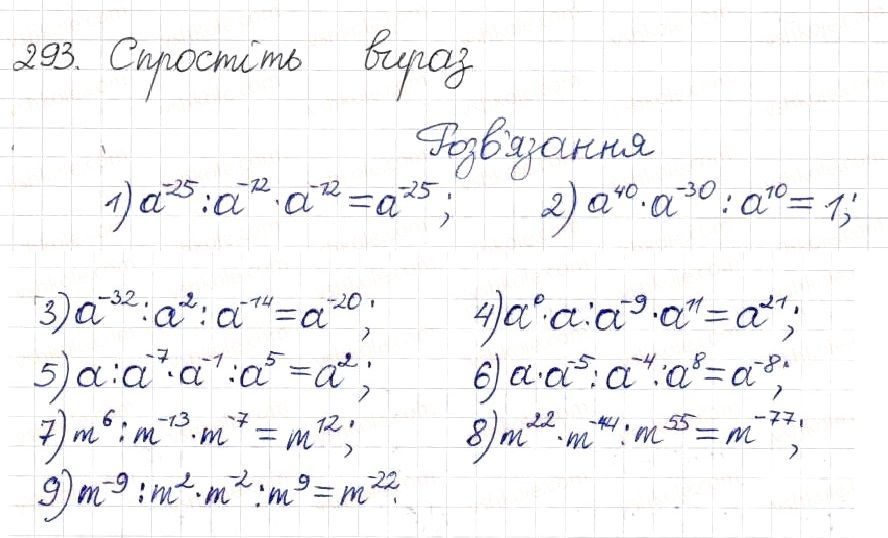 293. Спростіть вираз
Розв'язання
1) a⁻²⁵ : a⁻¹² · a⁻¹² = a⁻²⁵; 2) a⁴⁰ · a⁻³⁰ : a¹⁰ = 1;
3) a⁻³² : a² : a⁻¹⁴ = a⁻²⁰; 4) a⁰ · a : a⁻⁹ · a¹¹ = a²¹;
5) a : a⁻⁷ · a⁻¹ : a⁵ = a²; 6) a · a⁻⁵ : a⁻⁴ : a⁸ = a⁻⁸;
7) m⁶ : m⁻¹³ · m⁻⁷ = m¹²; 8) m²² · m⁻⁴⁴ : m⁵⁵ = m⁻⁷⁷;
9) m⁻⁹ : m² · m⁻² : m⁹ = m⁻²².